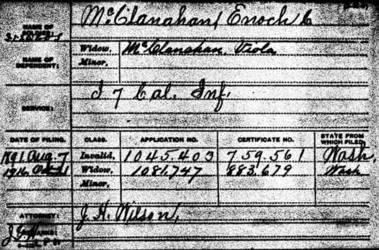 NAME OF
McClanahan, Enoch C
NAME OF DEPENDENT:
Widow, McClanahan, Viola
Minor,
SERVICE:
I 7 Cal. Inf.
DATE OF FILING. CLASS. APPLICATION NO. CERTIFICATE NO. STATE FROM WHICH FILED.
1891 Aug. 7 Invalid, 1045.403 759.561 Wash,
1916 Widow, 1081.747 883.679 Wash
Minor,
ATTORNEY: J. H. Wilson,